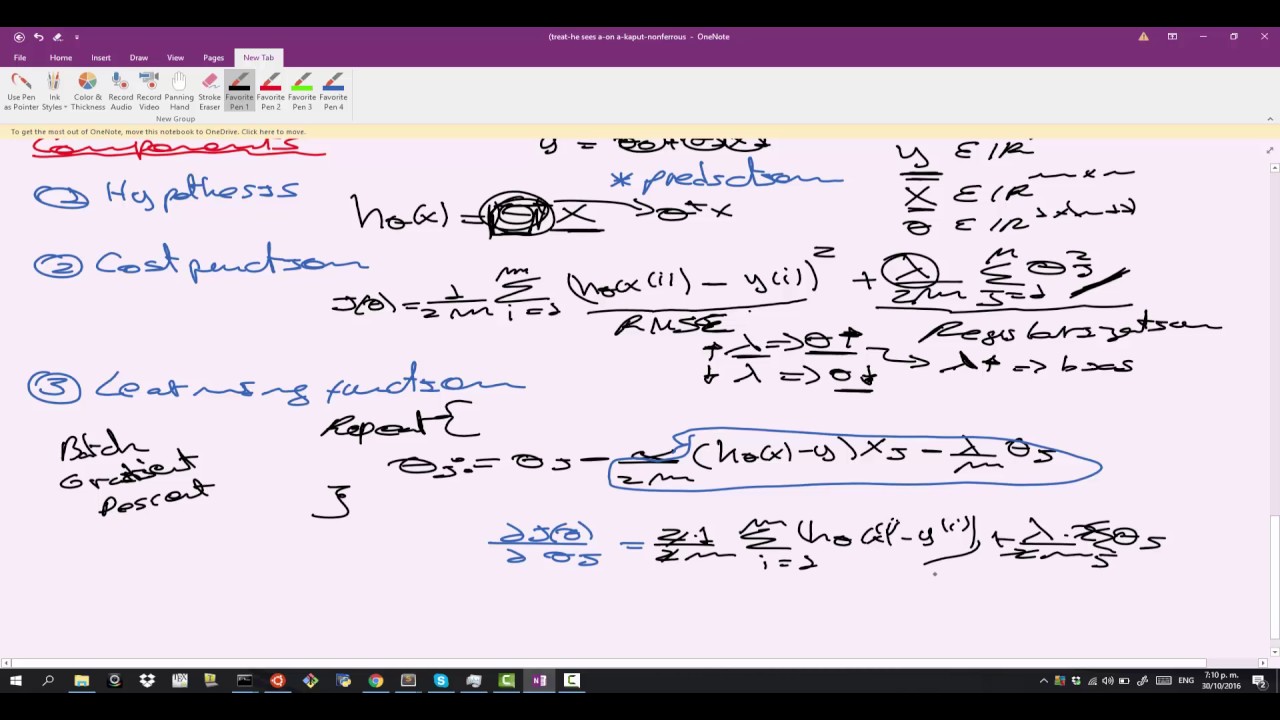 (treat-he sees a-on a-kaput-nonferrous - OneNote
File Home Insert Draw View Pages New Tab
Use Pen as Pointer Ink Styles Color & Thickness Record Audio Record Video Panning Hand Stroke Eraser Favorite Pen 1 Favorite Pen 2 Favorite Pen 3 Favorite Pen 4
New Group
To get the most out of OneNote, move this notebook to OneDrive. Click here to move.
Components
y ∈ ℝ
① Hypothesis
* prediction
x ∈ ℝ
hθ(x) = θᵀ x → θᵀx
θ ∈ ℝ
② Cost function
J(θ) = 1/2m Σ i=1 m (hθ(x(i)) - y(i))² + λ/2m Σ j=1 θj²
RMSE
Regularization
↑ λ => θ ↑
↓ λ => θ ↓
λ↑ => bias
③ Learning function
Repeat {
Batch
Gradient
Descent
θj := θj - /2m (hθ(x) - y) xj - λ/m θj
}
∂J(θ)/∂θj = 2·1/2m Σ i=1 m (hθ(x(i)) - y(i)) + λ·2/2m θj
ENG
7:10 p. m.
30/10/2016